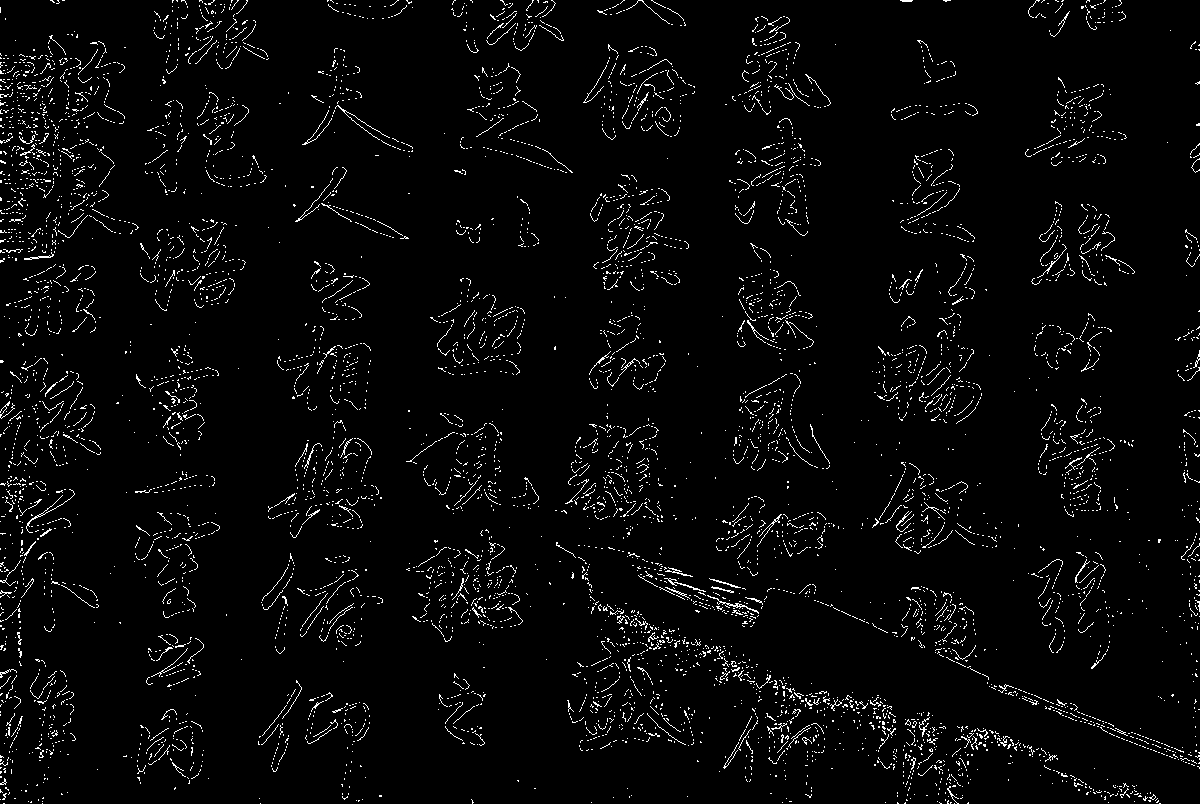 無絲竹管弦
足以暢敘幽情
氣清惠風和仰
大俯察品類盛
懷足以極視聽之
也夫人之相與俯仰
懷抱悟言一室之內
放浪形骸之外雖